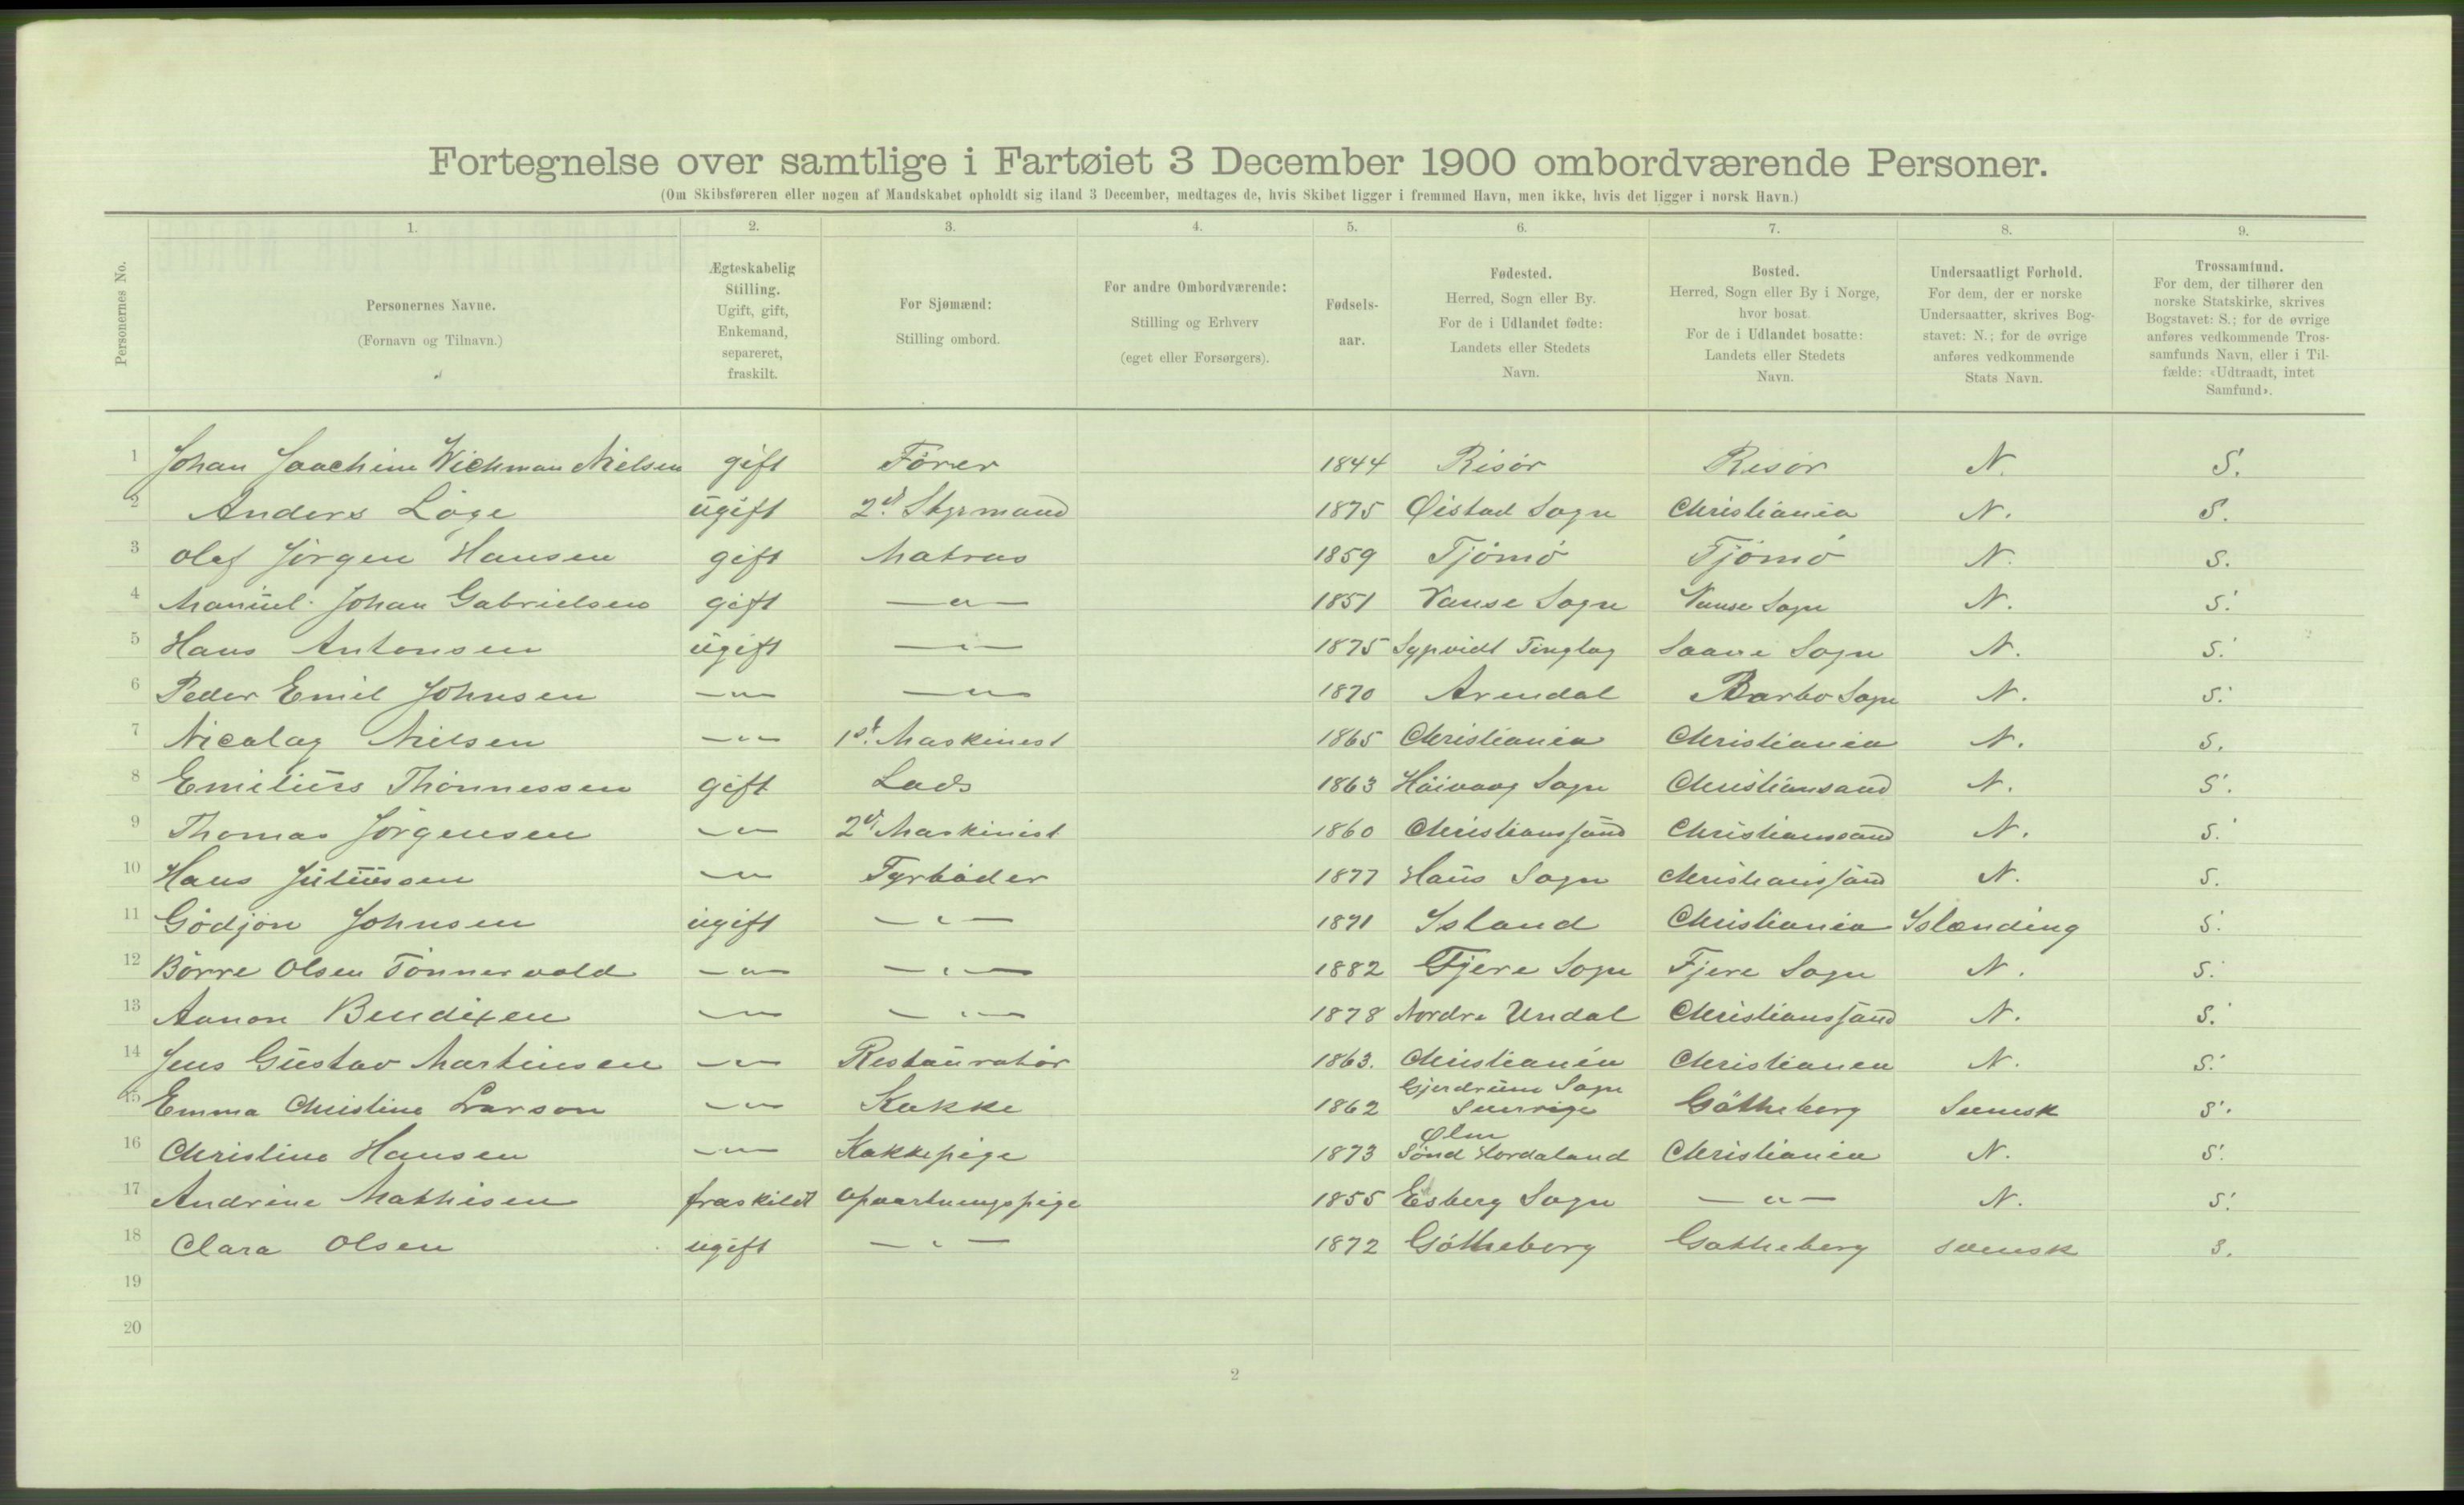 Fortegnelse over samtlige i Fartøiet 3 December 1900 ombordværende Personer.
(Om Skibsføreren eller nogen af Mandskabet opholdt sig iland 3 December, medtages de, hvis Skibet ligger i fremmed Havn, men ikke, hvis det ligger i norsk Havn.)
1. 2. 3. 4. 5. 6. 7. 8. 9.
Personernes No.
Personernes Navne.
(Fornavn og Tilnavn.)
Ægteskabelig
Stilling.
Ugift, gift,
Enkemand,
separeret,
fraskilt.
For Sjømænd:
Stilling ombord.
For andre Ombordværende:
Stilling og Erhverv
(eget eller Forsørgers).
Fødsels-
aar.
Fødested.
Herred, Sogn eller By.
For de i Udlandet fødte:
Landets eller Stedets
Navn.
Bosted.
Herred, Sogn eller By i Norge,
hvor bosat.
For de i Udlandet bosatte:
Landets eller Stedets
Navn.
Undersaatligt Forhold.
For dem, der er norske
Undersaatter, skrives Bog-
stavet: N.; for de øvrige
anføres vedkommende
Stats Navn.
Trossamfund.
For dem, der tilhører den
norske Statskirke, skrives
Bogstavet: S.; for de øvrige
anføres vedkommende Tros-
samfunds Navn, eller i Til-
fælde: «Udtraadt, intet
Samfund».
1 Johan Joachim Wichman Nielsen gift Förer 1844 Risör Risör N. S.
2 Anders Löge ugift 2d. Styrmand 1875 Øistad Sogn Christiania N. S.
3 Olaf Jörgen Hansen gift Matros 1859 Tjömö Tjömö N. S.
4 Manuel Johan Gabrielsen gift —„— 1851 Vanse Sogn Vanse Sogn N. S.
5 Hans Antonsen ugift —„— 1875 Tinglag Sogn N. S.
6 Peder Emil Johnsen —„— —„— 1870 Arendal Barbo Sogn N. S.
7 Nicolay Nielsen —„— 1st. Maskinist 1865 Christiania Christiania N. S.
8 Emilius Thönnessen gift Lods 1863 Höivaag Sogn Christiansand N. S.
9 Thomas Jörgensen —„— 2d. Maskinist 1860 Christianssand Christianssand N. S.
10 Hans Juliussen —„— Fyrböder 1877 Haus Sogn Christianssand N. S.
11 Gödjön Johnsen ugift —„— 1871 Island Christiania Islænding S.
12 Börre Olsen Tönnevold —„— —„— 1882 Fjere Sogn Fjere Sogn N. S.
13 Aanon Bendixen —„— —„— 1878 Nordre Undal Christianssand N. S.
14 Jens Gustav Martinsen —„— Restauratör 1863. Christiania Christiania N. S.
Gjerdrum Sogn
15 Emma Christine Larson —„— Kokke 1862 Sverrige Götheborg Svensk S.
Ølen
16 Christine Hansen —„— Kokkepige 1873 Sönd Hordaland Christiania N. S.
17 Andrine Mathisen fraskildt Opvartningspige 1855 Esberg Sogn —„— N. S.
18 Clara Olsen ugift —„— 1872 Götheborg Gotheborg svensk S.
19
20
2